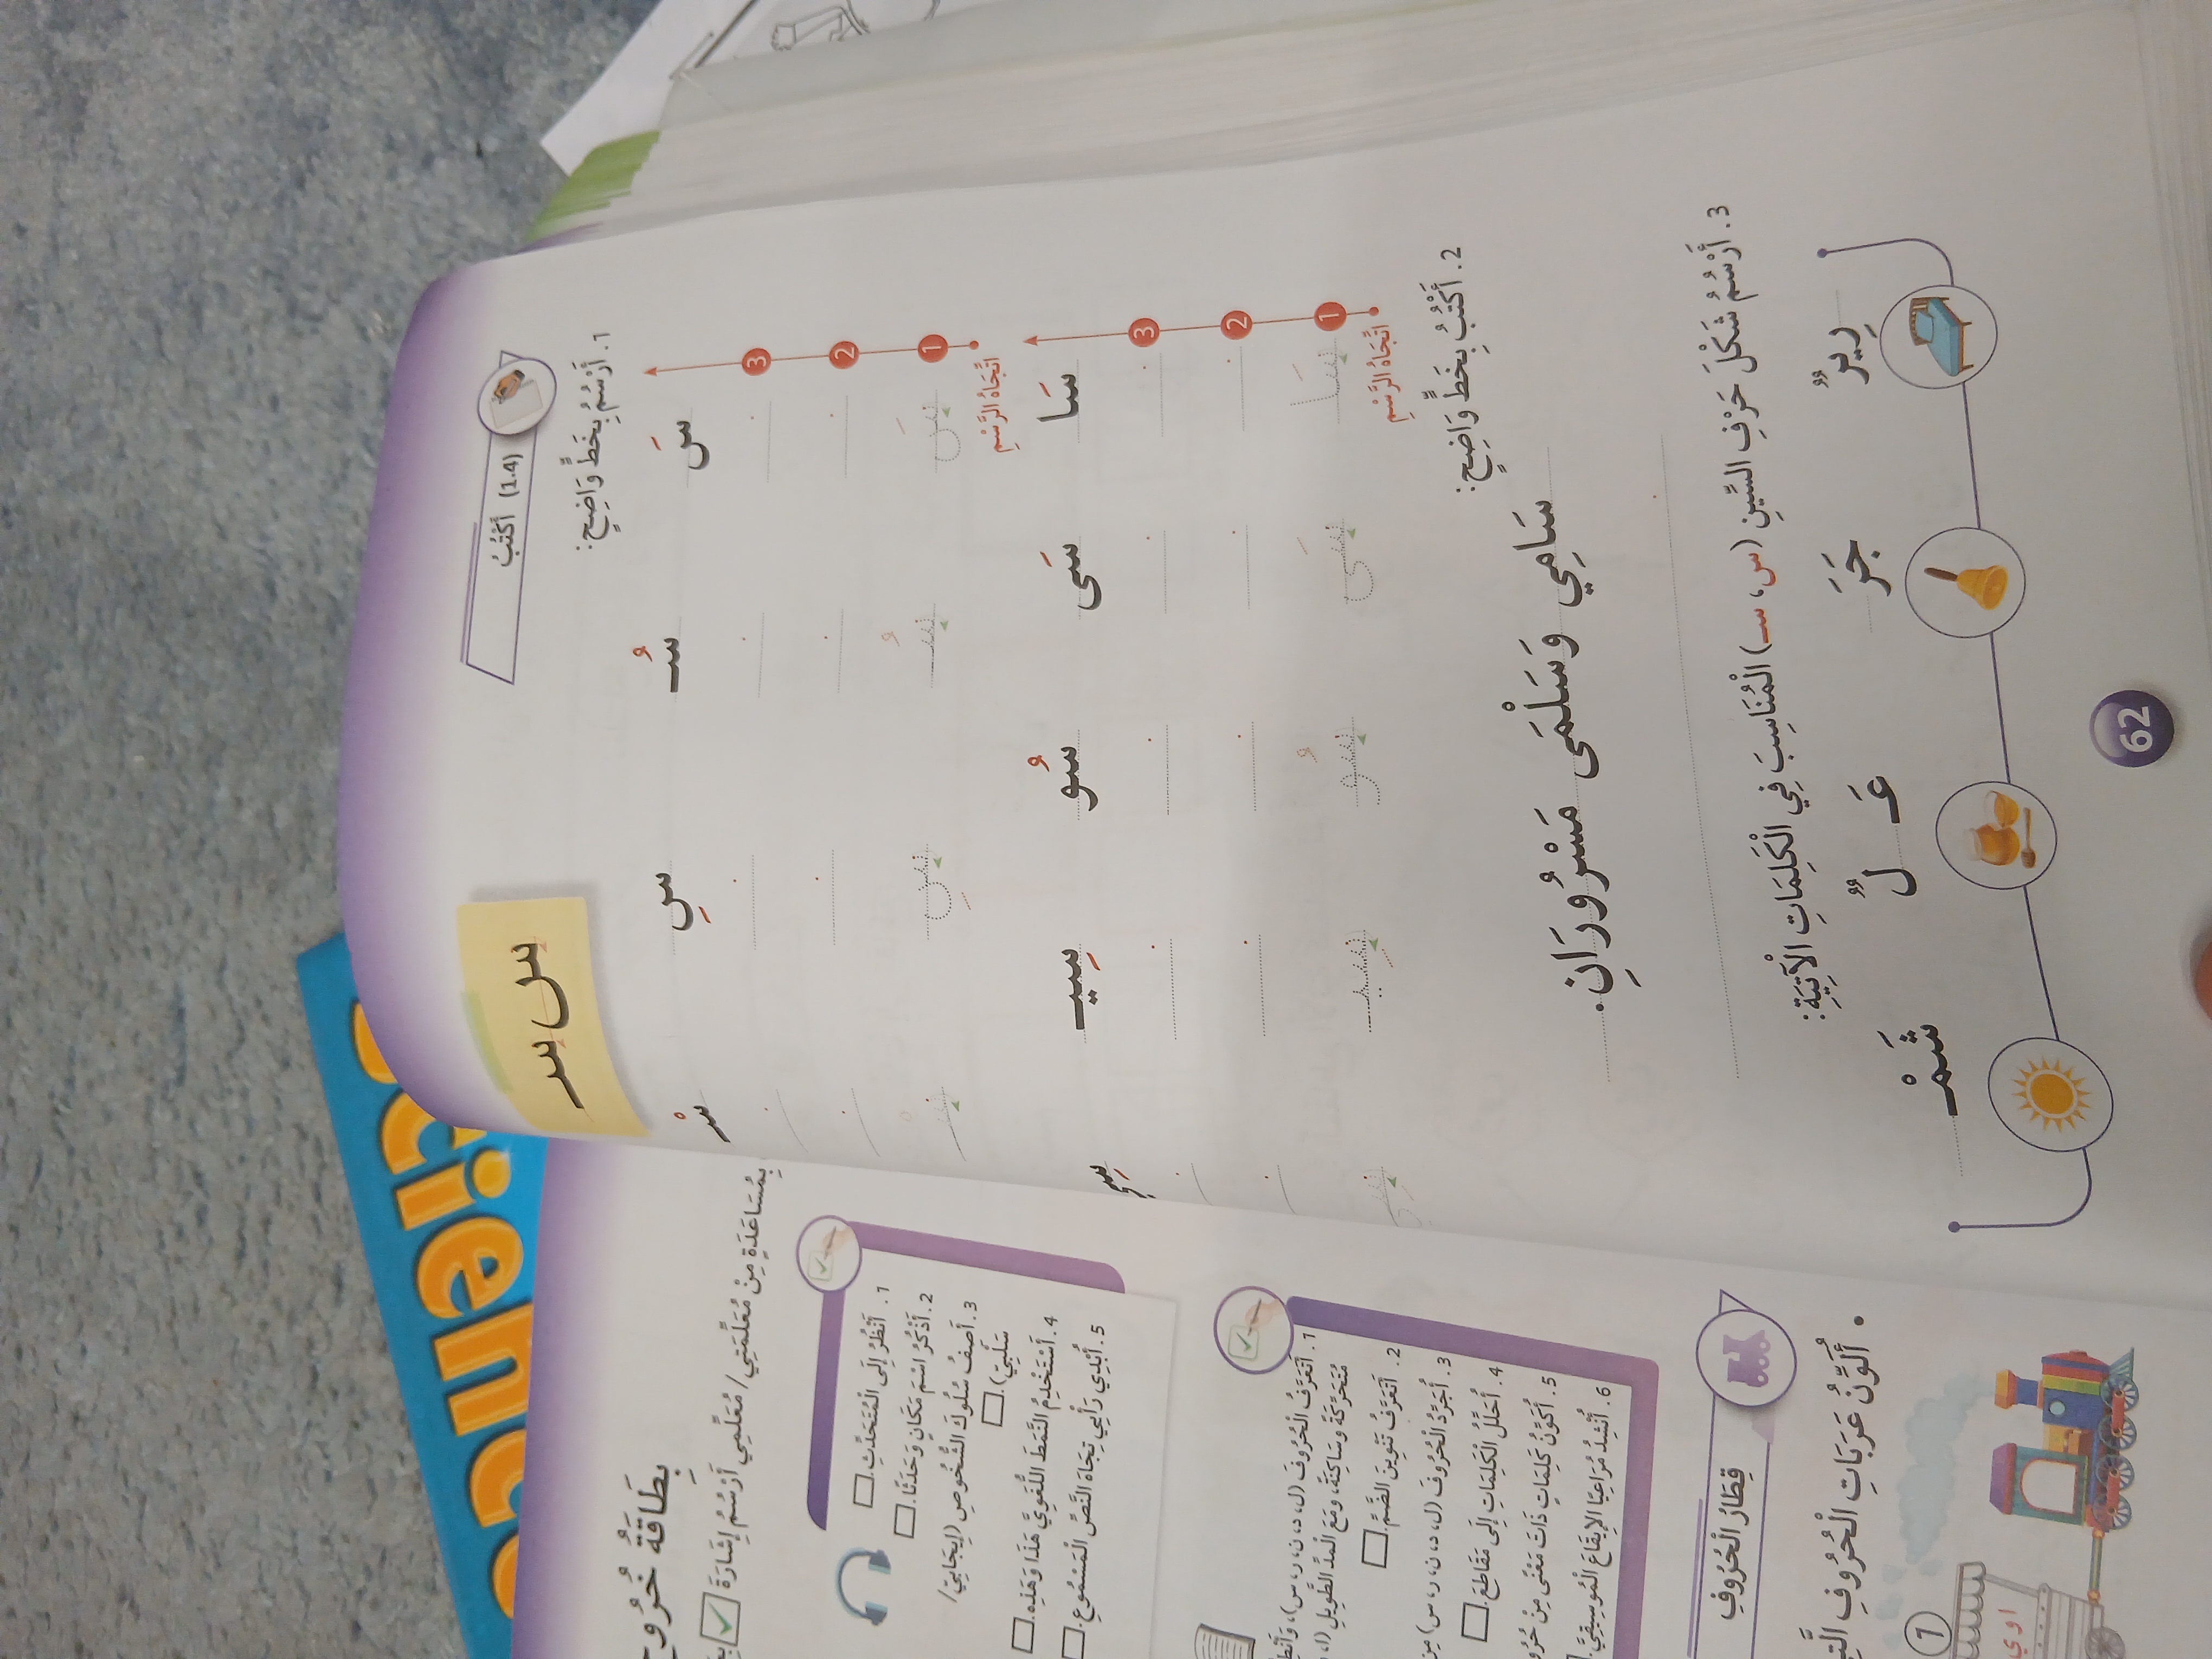 (1.4) أَكْتُبُ
1. أَرْسُمُ بِخَطٍّ وَاضِحٍ:
س سـ
سَ سُـ سِ سْـ
3
2
1
سَ سُـ سِ سْـ
اتِّجَاهُ الرَّسْمِ
سَا سَى سُو سِيـ سِي
3
2
1
سَا سَى سُو سِيـ سِي
اتِّجَاهُ الرَّسْمِ
2. أَكْتُبُ بِخَطٍّ وَاضِحٍ:
سَامِي وَسَلْمَى مَسْرُورَانِ.
3. أَرْسُمُ شَكْلَ حَرْفِ السِّينِ (س، سـ) الْمُنَاسِبَ فِي الْكَلِمَاتِ الْآتِيَةِ:
رِيرٌ جَرَ عَـ لٌ شَمْـ
62
Science
بِطَاقَةُ خُرُوجٍ
بِمُسَاعَدَةِ مِنْ مُعَلِّمَتِي/ مُعَلِّمِي أَرْسُمُ إِشَارَةَ
1. أَنْظُرُ إِلَى الْمُتَحَدِّثِ.
2. أَذْكُرُ اسْمَ مَكَانٍ وَحَدَثًا.
3. أَصِفُ سُلُوكَ الشُّخُوصِ (إِيجَابِيّ/
سَلْبِيّ).
4. أَسْتَخْدِمُ النَّمَطَ اللُّغَوِيَّ هَذَا وَهَذِهِ.
5. أُبْدِي رَأْيِي تِجَاهَ النَّصِّ الْمَسْمُوعِ.
1. أَتَعَرَّفُ الْحُرُوفَ (ل، د، ن، ر، س)،
مُتَحَرِّكَةً وَسَاكِنَةً، وَمَعَ الْمَدِّ الطَّوِيلِ
2. أَتَعَرَّفُ تَنْوِينَ الضَّمِّ.
3. أُجَرِّدُ الْحُرُوفَ (ل، د، ن، ر، س)
4. أُحَلِّلُ الْكَلِمَاتِ إِلَى مَقَاطِعَ.
5. أُكَوِّنُ كَلِمَاتٍ ذَاتَ مَعْنًى مِنْ
6. أُنْشِدُ مُرَاعِيًا الْإِيقَاعَ الْمُوسِيقِيَّ.
قِطَارُ الْحُرُوفِ
• أُلَوِّنُ عَرَبَاتِ الْحُرُوفِ
1
ا و ي